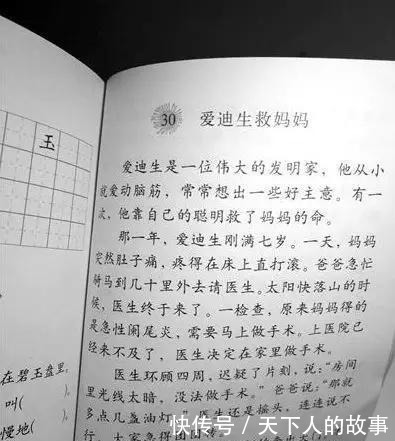 玉
在碧玉盘里,
叫(
慢地(
30 爱迪生救妈妈
爱迪生是一位伟大的发明家,他从小
就爱动脑筋,常常想出一些好主意。有一
次,他靠自己的聪明救了妈妈的命。
那一年,爱迪生刚满七岁。一天,妈妈
突然肚子痛,疼得在床上直打滚。爸爸急忙
骑马到几十里外去请医生。太阳快落山的时
候,医生终于来了。一检查,原来妈妈得的
是急性阑尾炎,需要马上做手术。上医院已
经来不及了,医生决定在家里做手术。
医生环顾四周,迟疑了片刻,说:“房间
里光线太暗,没法做手术。”爸爸说:“那就
多点几盏油灯。”医生还是摇头,连连说不
行。大家急得团团转
快传号/天下人的故事